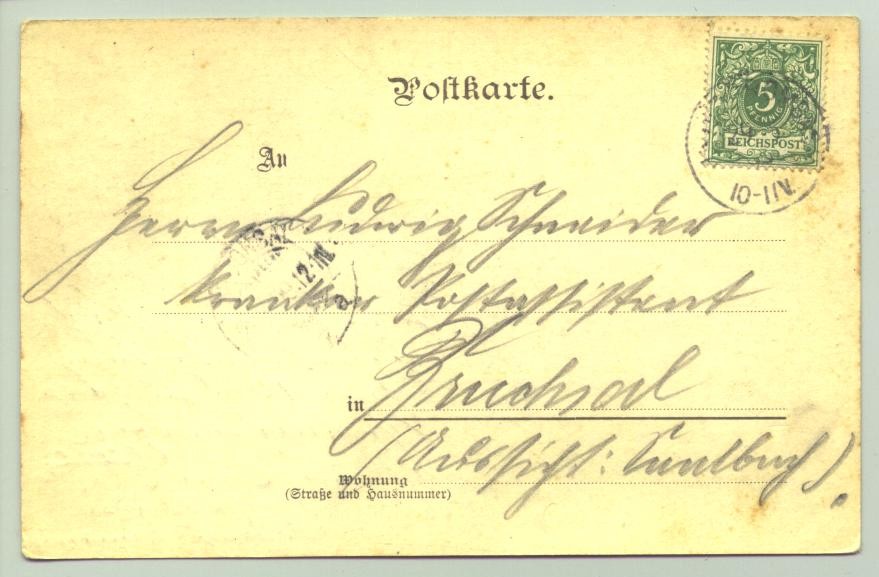 Postkarte.
5
PFENNIG
REICHSPOST
10-11N
An
Herrn Ludwig Schneider
12-1N
kranker Postassistent
in Bruchsal
(Aussicht: Saalbach).
Wohnung
(Straße und Hausnummer)